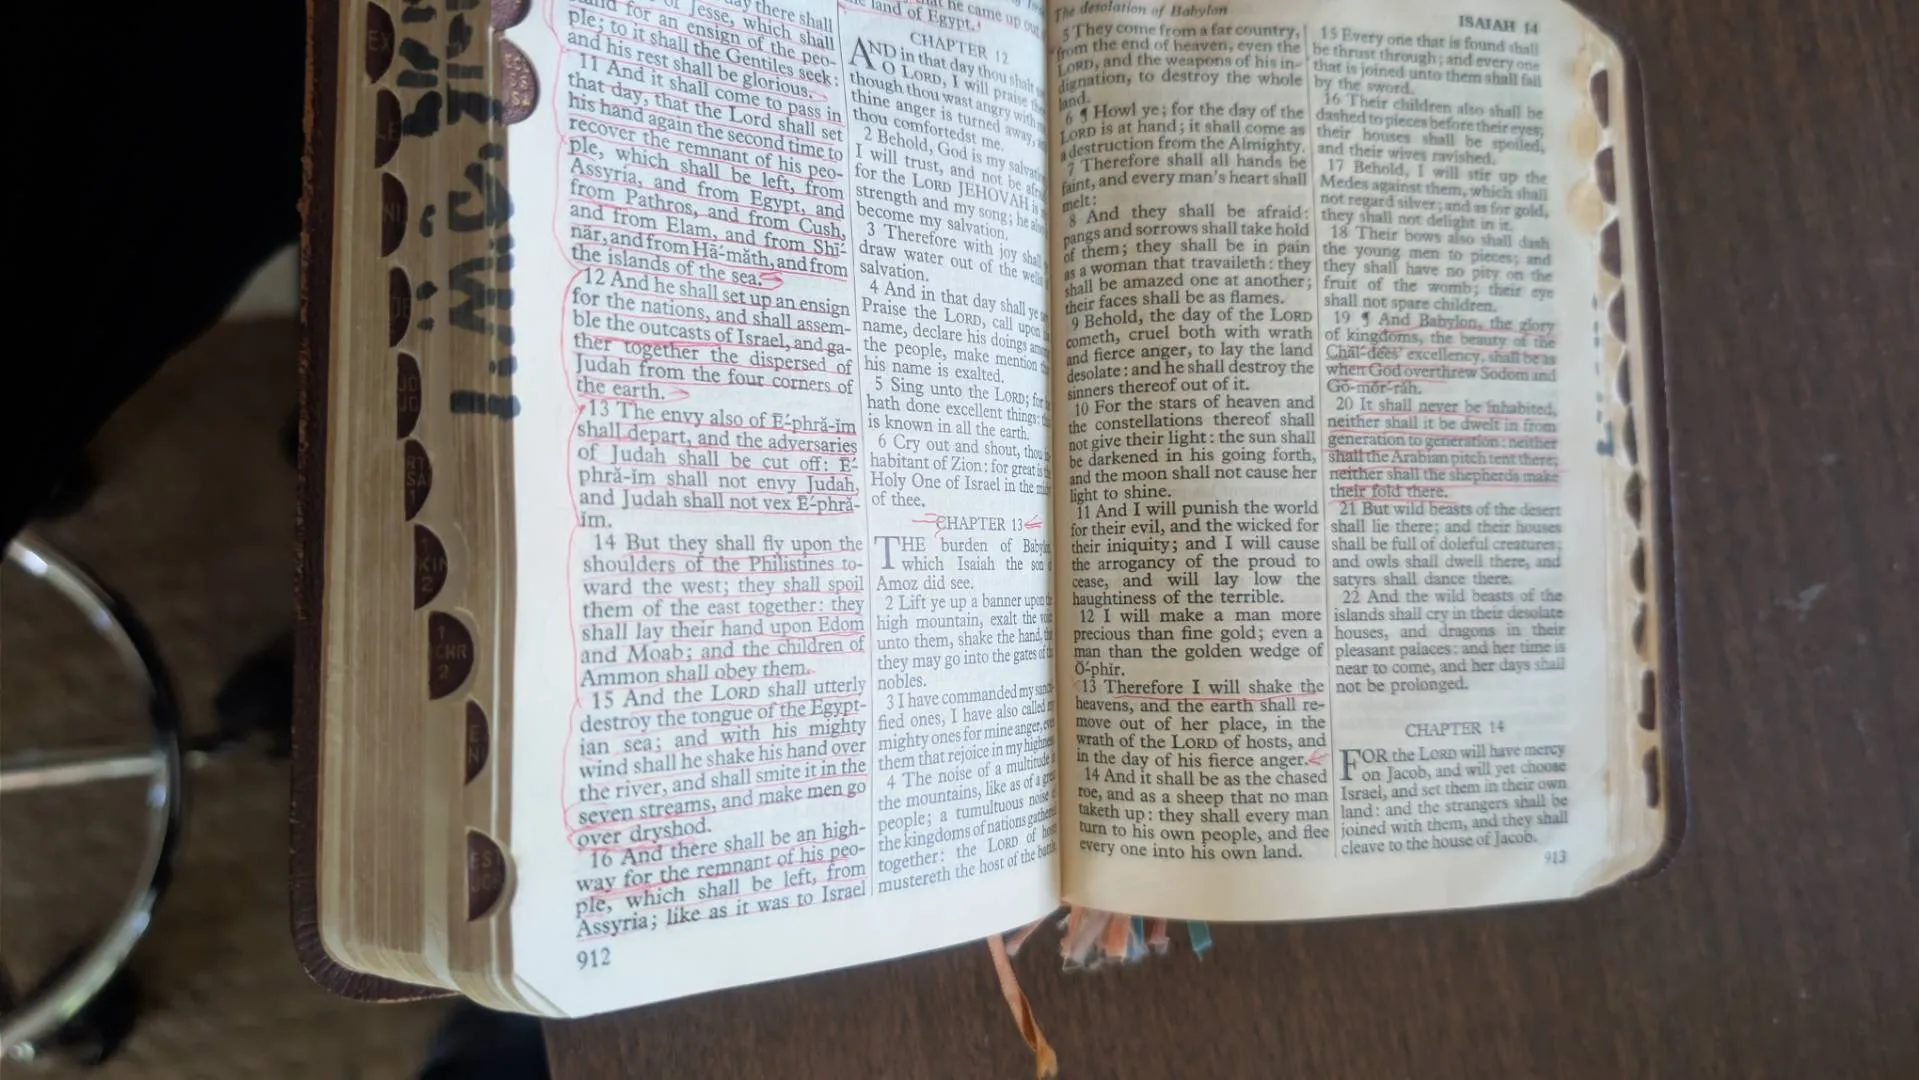 day there shall
of Jesse, which shall
for an ensign of the peo-
ple; to it shall the Gentiles seek:
and his rest shall be glorious.
11 And it shall come to pass in
that day, that the Lord shall set
his hand again the second time to
recover the remnant of his peo-
ple, which shall be left, from
Assyria, and from Egypt, and
from Pathros, and from Cush,
and from Elam, and from Shī́-
när, and from Hā́-măth, and from
the islands of the sea.
12 And he shall set up an ensign
for the nations, and shall assem-
ble the outcasts of Israel, and ga-
ther together the dispersed of
Judah from the four corners of
the earth.
13 The envy also of Ḗ-phră-ĭm
shall depart, and the adversaries
of Judah shall be cut off: Ḗ-
phră-ĭm shall not envy Judah,
and Judah shall not vex Ḗ-phră-
ĭm.
14 But they shall fly upon the
shoulders of the Philistines to-
ward the west; they shall spoil
them of the east together: they
shall lay their hand upon Edom
and Moab; and the children of
Ammon shall obey them.
15 And the LORD shall utterly
destroy the tongue of the Egypt-
ian sea; and with his mighty
wind shall he shake his hand over
the river, and shall smite it in the
seven streams, and make men go
over dryshod.
16 And there shall be an high-
way for the remnant of his peo-
ple, which shall be left, from
Assyria; like as it was to Israel
912
that he came up out
land of Egypt.
CHAPTER 12
AND in that day thou shalt
O LORD, I will praise
though thou wast angry with
thine anger is turned away,
thou comfortedst me.
2 Behold, God is my
I will trust, and not be
for the LORD JEHOVAH is
strength and my song; he
become my salvation.
3 Therefore with joy
draw water out of the
salvation.
4 And in that day shall ye
Praise the LORD, call upon
name, declare his doings
the people, make mention
his name is exalted.
5 Sing unto the LORD; for
hath done excellent things:
is known in all the earth.
6 Cry out and shout, thou
habitant of Zion: for great is
Holy One of Israel in the
of thee.
CHAPTER 13
THE burden of
which Isaiah the son
Amoz did see.
2 Lift ye up a banner upon
high mountain, exalt the
unto them, shake the hand,
they may go into the gates of
nobles.
3 I have commanded my
fied ones, I have also called
mighty ones for mine anger,
them that rejoice in my
4 The noise of a multitude
the mountains, like as of a
people; a tumultuous noise
the kingdoms of nations
together: the LORD of
mustereth the host of the
The desolation of Babylon
5 They come from a far country,
from the end of heaven, even the
LORD, and the weapons of his in-
dignation, to destroy the whole
land.
6 ¶ Howl ye; for the day of the
LORD is at hand; it shall come as
a destruction from the Almighty.
7 Therefore shall all hands be
faint, and every man's heart shall
melt:
8 And they shall be afraid:
pangs and sorrows shall take hold
of them; they shall be in pain
as a woman that travaileth: they
shall be amazed one at another;
their faces shall be as flames.
9 Behold, the day of the LORD
cometh, cruel both with wrath
and fierce anger, to lay the land
desolate: and he shall destroy the
sinners thereof out of it.
10 For the stars of heaven and
the constellations thereof shall
not give their light: the sun shall
be darkened in his going forth,
and the moon shall not cause her
light to shine.
11 And I will punish the world
for their evil, and the wicked for
their iniquity; and I will cause
the arrogancy of the proud to
cease, and will lay low the
haughtiness of the terrible.
12 I will make a man more
precious than fine gold; even a
man than the golden wedge of
Ṓ-phir.
13 Therefore I will shake the
heavens, and the earth shall re-
move out of her place, in the
wrath of the LORD of hosts, and
in the day of his fierce anger.
14 And it shall be as the chased
roe, and as a sheep that no man
taketh up: they shall every man
turn to his own people, and flee
every one into his own land.
ISAIAH 14
15 Every one that is found shall
be thrust through; and every one
that is joined unto them shall fall
by the sword.
16 Their children also shall be
dashed to pieces before their eyes;
their houses shall be spoiled,
and their wives ravished.
17 Behold, I will stir up the
Medes against them, which shall
not regard silver; and as for gold,
they shall not delight in it.
18 Their bows also shall dash
the young men to pieces; and
they shall have no pity on the
fruit of the womb; their eye
shall not spare children.
19 ¶ And Babylon, the glory
of kingdoms, the beauty of the
Chăl-dēes' excellency, shall be as
when God overthrew Sodom and
Gō-mŏr-răh.
20 It shall never be inhabited,
neither shall it be dwelt in from
generation to generation: neither
shall the Arabian pitch tent there;
neither shall the shepherds make
their fold there.
21 But wild beasts of the desert
shall lie there; and their houses
shall be full of doleful creatures;
and owls shall dwell there, and
satyrs shall dance there.
22 And the wild beasts of the
islands shall cry in their desolate
houses, and dragons in their
pleasant palaces: and her time is
near to come, and her days shall
not be prolonged.
CHAPTER 14
FOR the LORD will have mercy
on Jacob, and will yet choose
Israel, and set them in their own
land: and the strangers shall be
joined with them, and they shall
cleave to the house of Jacob.
913